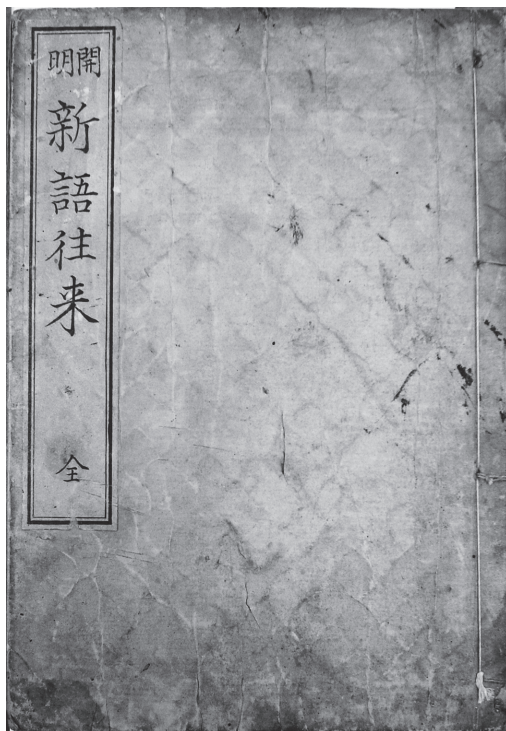 開明
新語往来
全